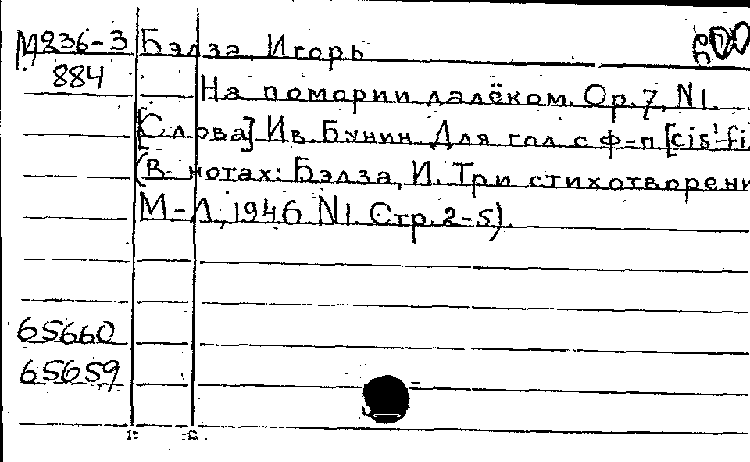 М236-3 Бэлза, Игорь 600
884
На помории далёком. Ор. 7, N1.
[Слова] Ив. Бунин. Для гол. с ф-п [cis'-fi
(В нотах: Бэлза, И. Три стихотворени
М-Л, 1946 N1. Стр. 2-5).
65660
65659